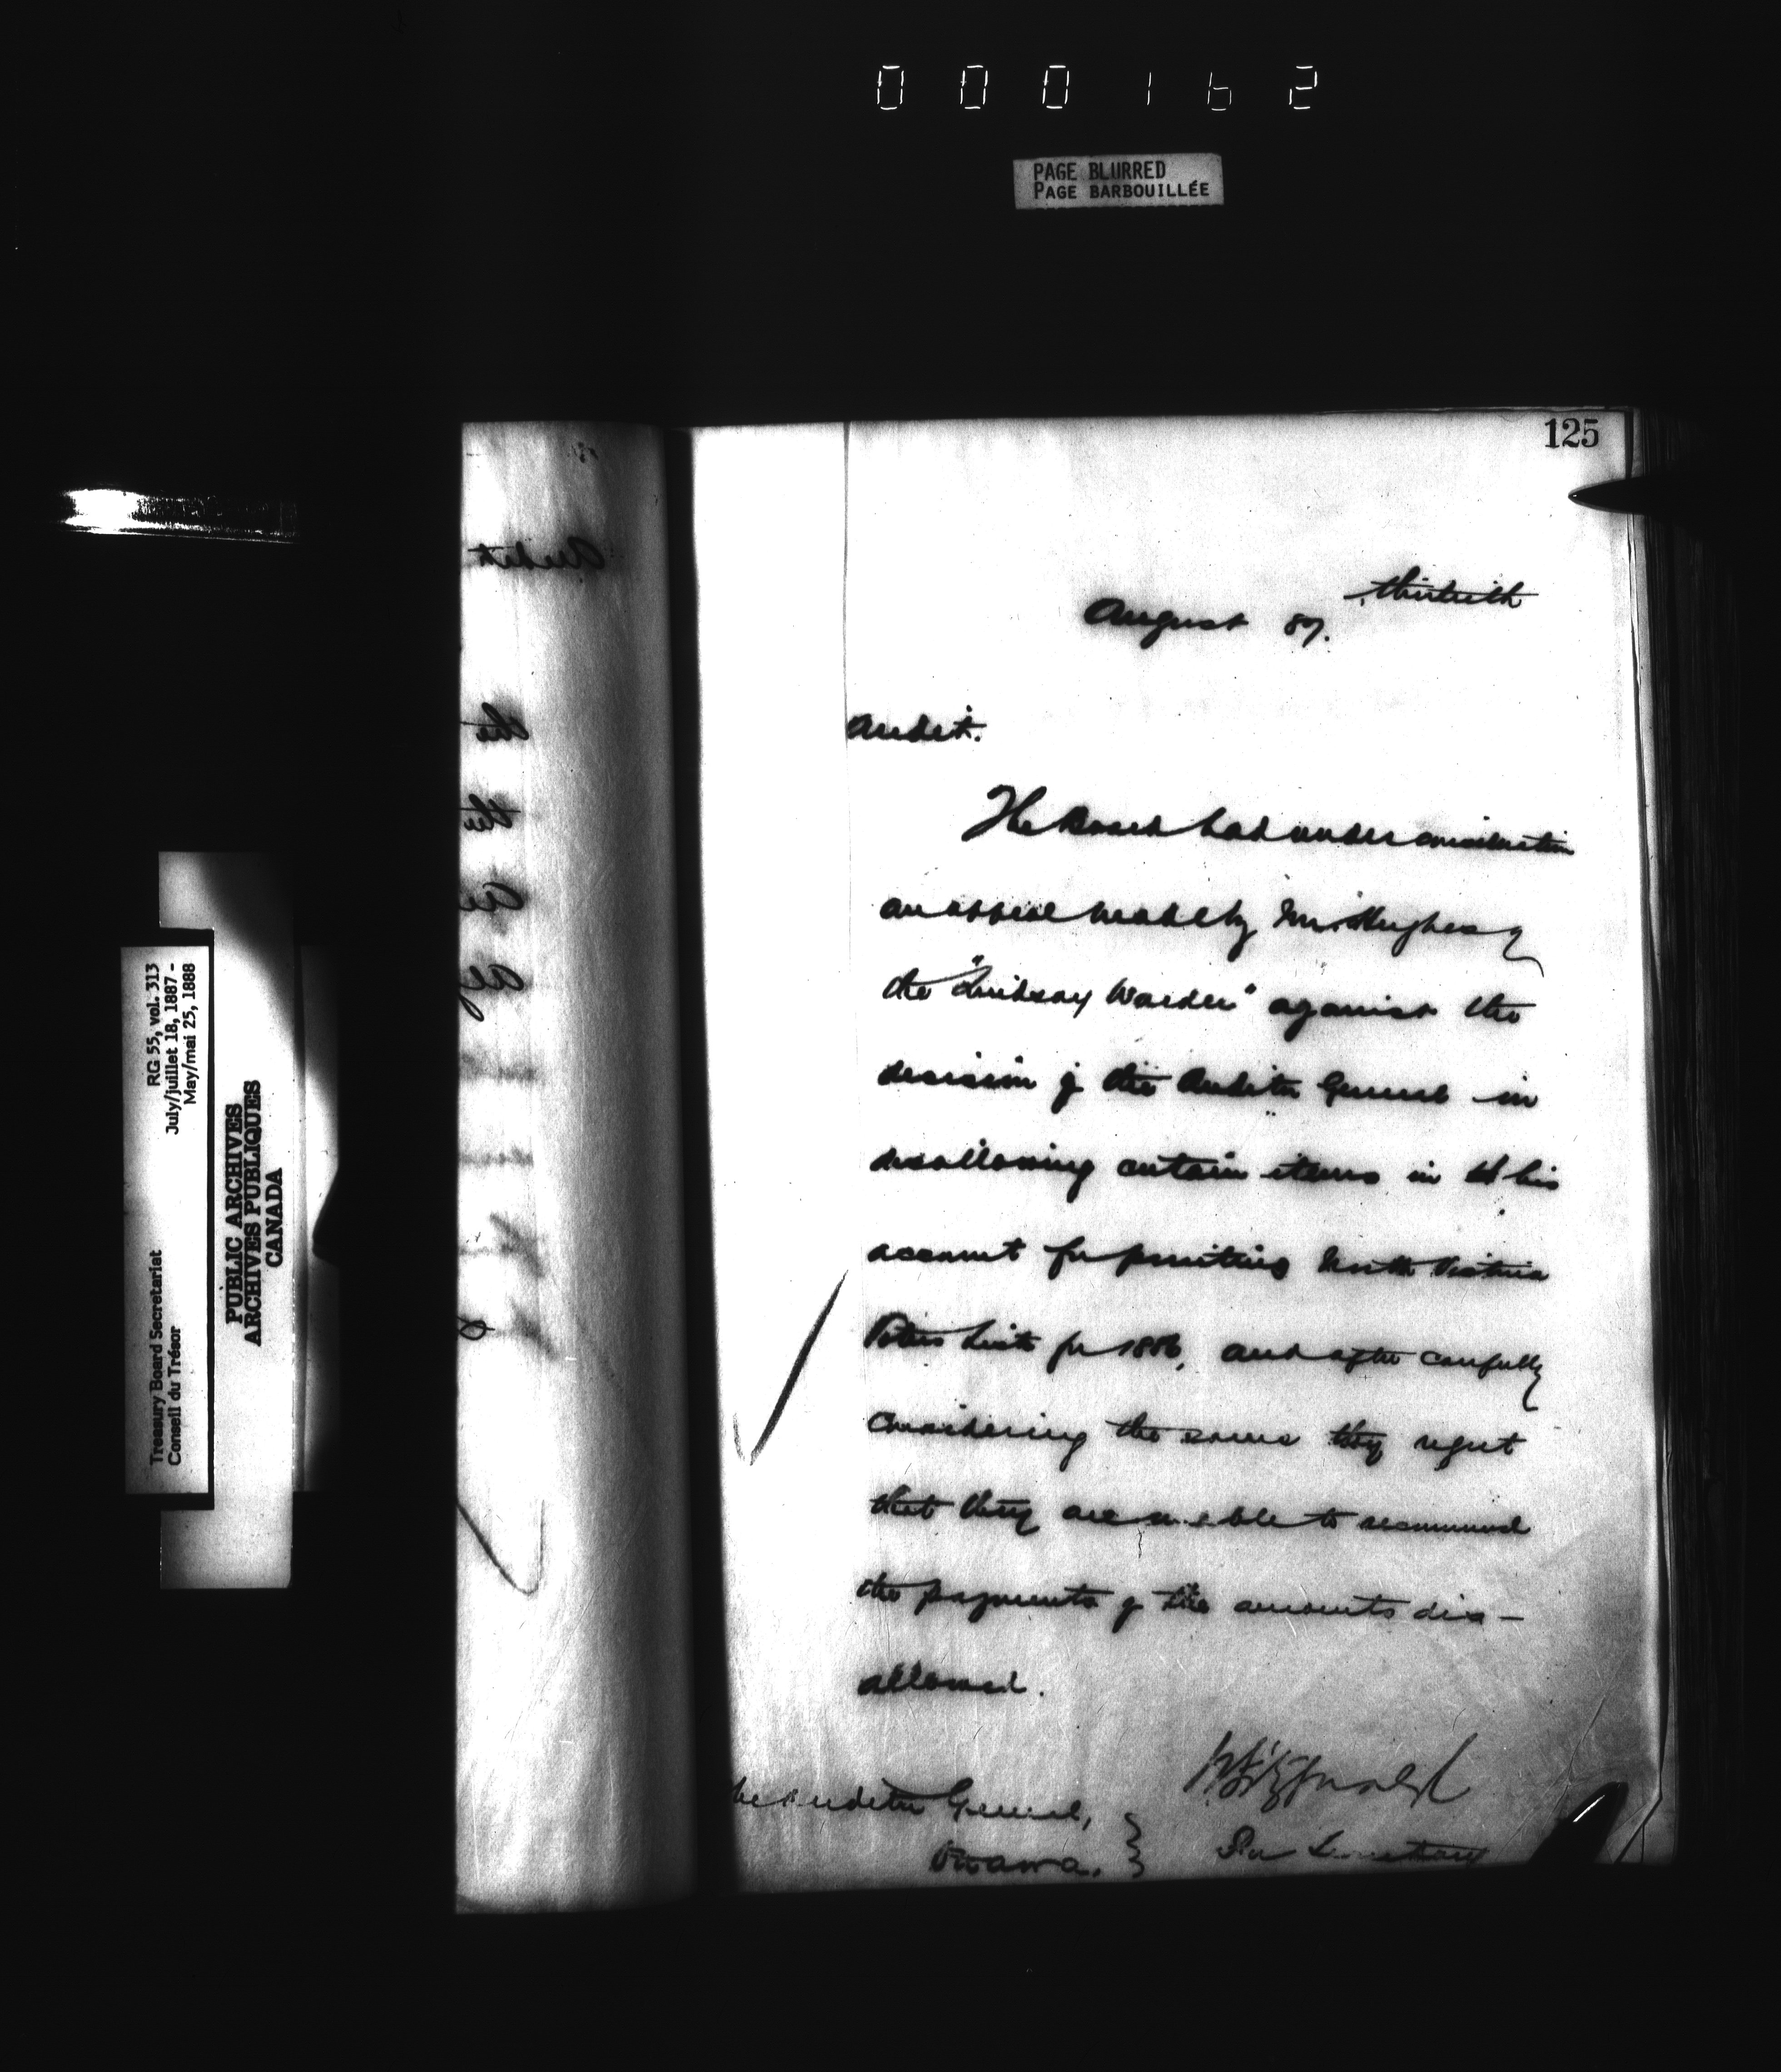 000162
PAGE BLURRED
PAGE BARBOUILLÉE
125
thirtieth
August 87.
Audit.
The Board had under consideration
an appeal made by Mr. Hughes of
the "Lindsay Warder" against the
decision of the Auditor General in
disallowing certain items in his
account for printing North Victoria
Voters Lists for 1886, and after carefully
considering the same they regret
that they are unable to recommend
the payments of the amounts dis-
allowed.
The Auditor General,
Ottawa.
Secretary
Audit
the
the
RG 55, vol. 313
July/juillet 18, 1887 -
May/mai 25, 1888
Treasury Board Secretariat
Conseil du Trésor
PUBLIC ARCHIVES
ARCHIVES PUBLIQUES
CANADA